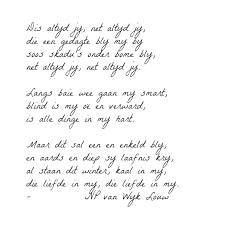 Dis altyd jy, net altyd jy,
die een gedagte bly my by
soos skadu's onder bome bly,
net altyd jy, net altyd jy.

Langs baie wee gaan my smart,
blind is my oë en verward,
is alle dinge in my hart.

Maar dit sal een en enkeld bly,
en aards en diep sy laafnis kry,
al staan dit winter, kaal in my,
die liefde in my, die liefde in my.
- NP van Wyk Louw